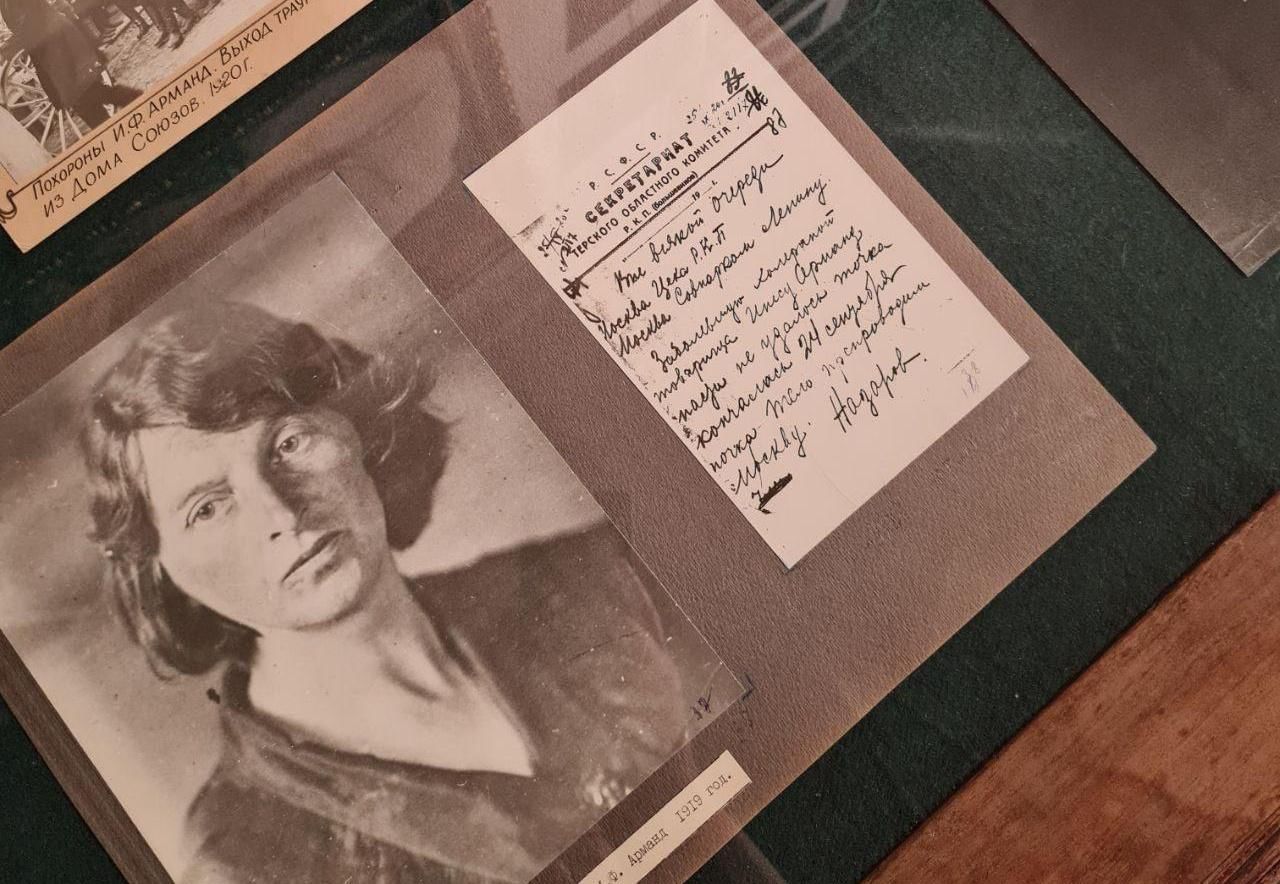 Похороны И.Ф. Арманд. Выход траур
из Дома Союзов. 1920г.
Р. С. Ф. С. Р.
СЕКРЕТАРИАТ
ТЕРСКОГО ОБЛАСТНОГО КОМИТЕТА.
Р. К. П. (большевиков)
19
Вне всякой очереди
Москва Цека Р.К.П
Москва Совнарком Ленину
Заболевшую холерой
товарища Инесу Арманд
не удалось точка
кончалась 24 сентября
точка тело
Москву. Назаров.
87
Ф. Арманд 1919 год.